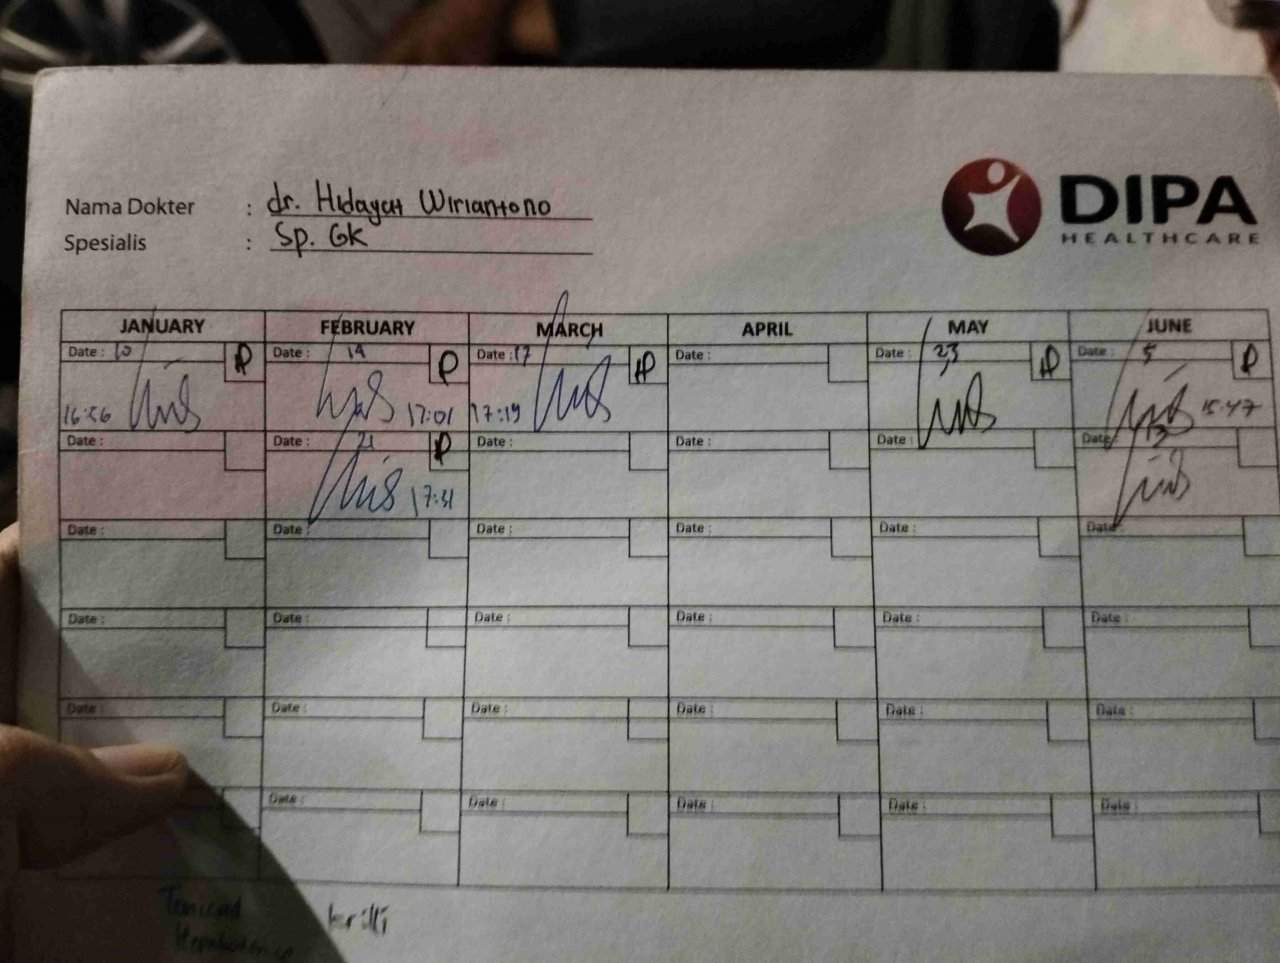 DIPA
HEALTHCARE
Nama Dokter : dr. Hidayat Wiriantono
Spesialis : Sp. GK
JANUARY FEBRUARY MARCH APRIL MAY JUNE
Date : 10 Date : 14 Date : 17 Date : Date : 23 Date : 5
16:56 17:01 17:19 15:47
Date : Date : 21 Date : Date : Date : Date : 13
17:31
Date : Date : Date : Date : Date : Date :
Date : Date : Date : Date : Date : Date :
Date : Date : Date : Date : Date : Date :
Date : Date : Date : Date : Date :
krilli